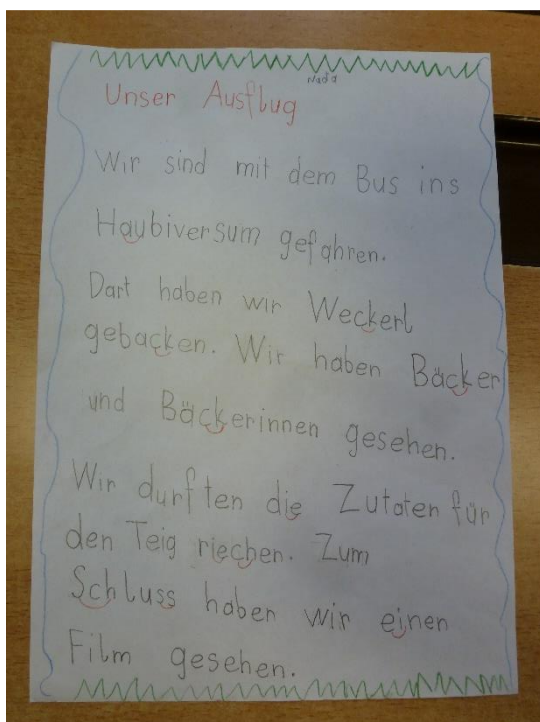 Nada
Unser Ausflug
Wir sind mit dem Bus ins
Haubiversum gefahren.
Dart haben wir Weckerl
gebacken. Wir haben Bäcker
und Bäckerinnen gesehen.
Wir durften die Zutaten für
den Teig riechen. Zum
Schluss haben wir einen
Film gesehen.